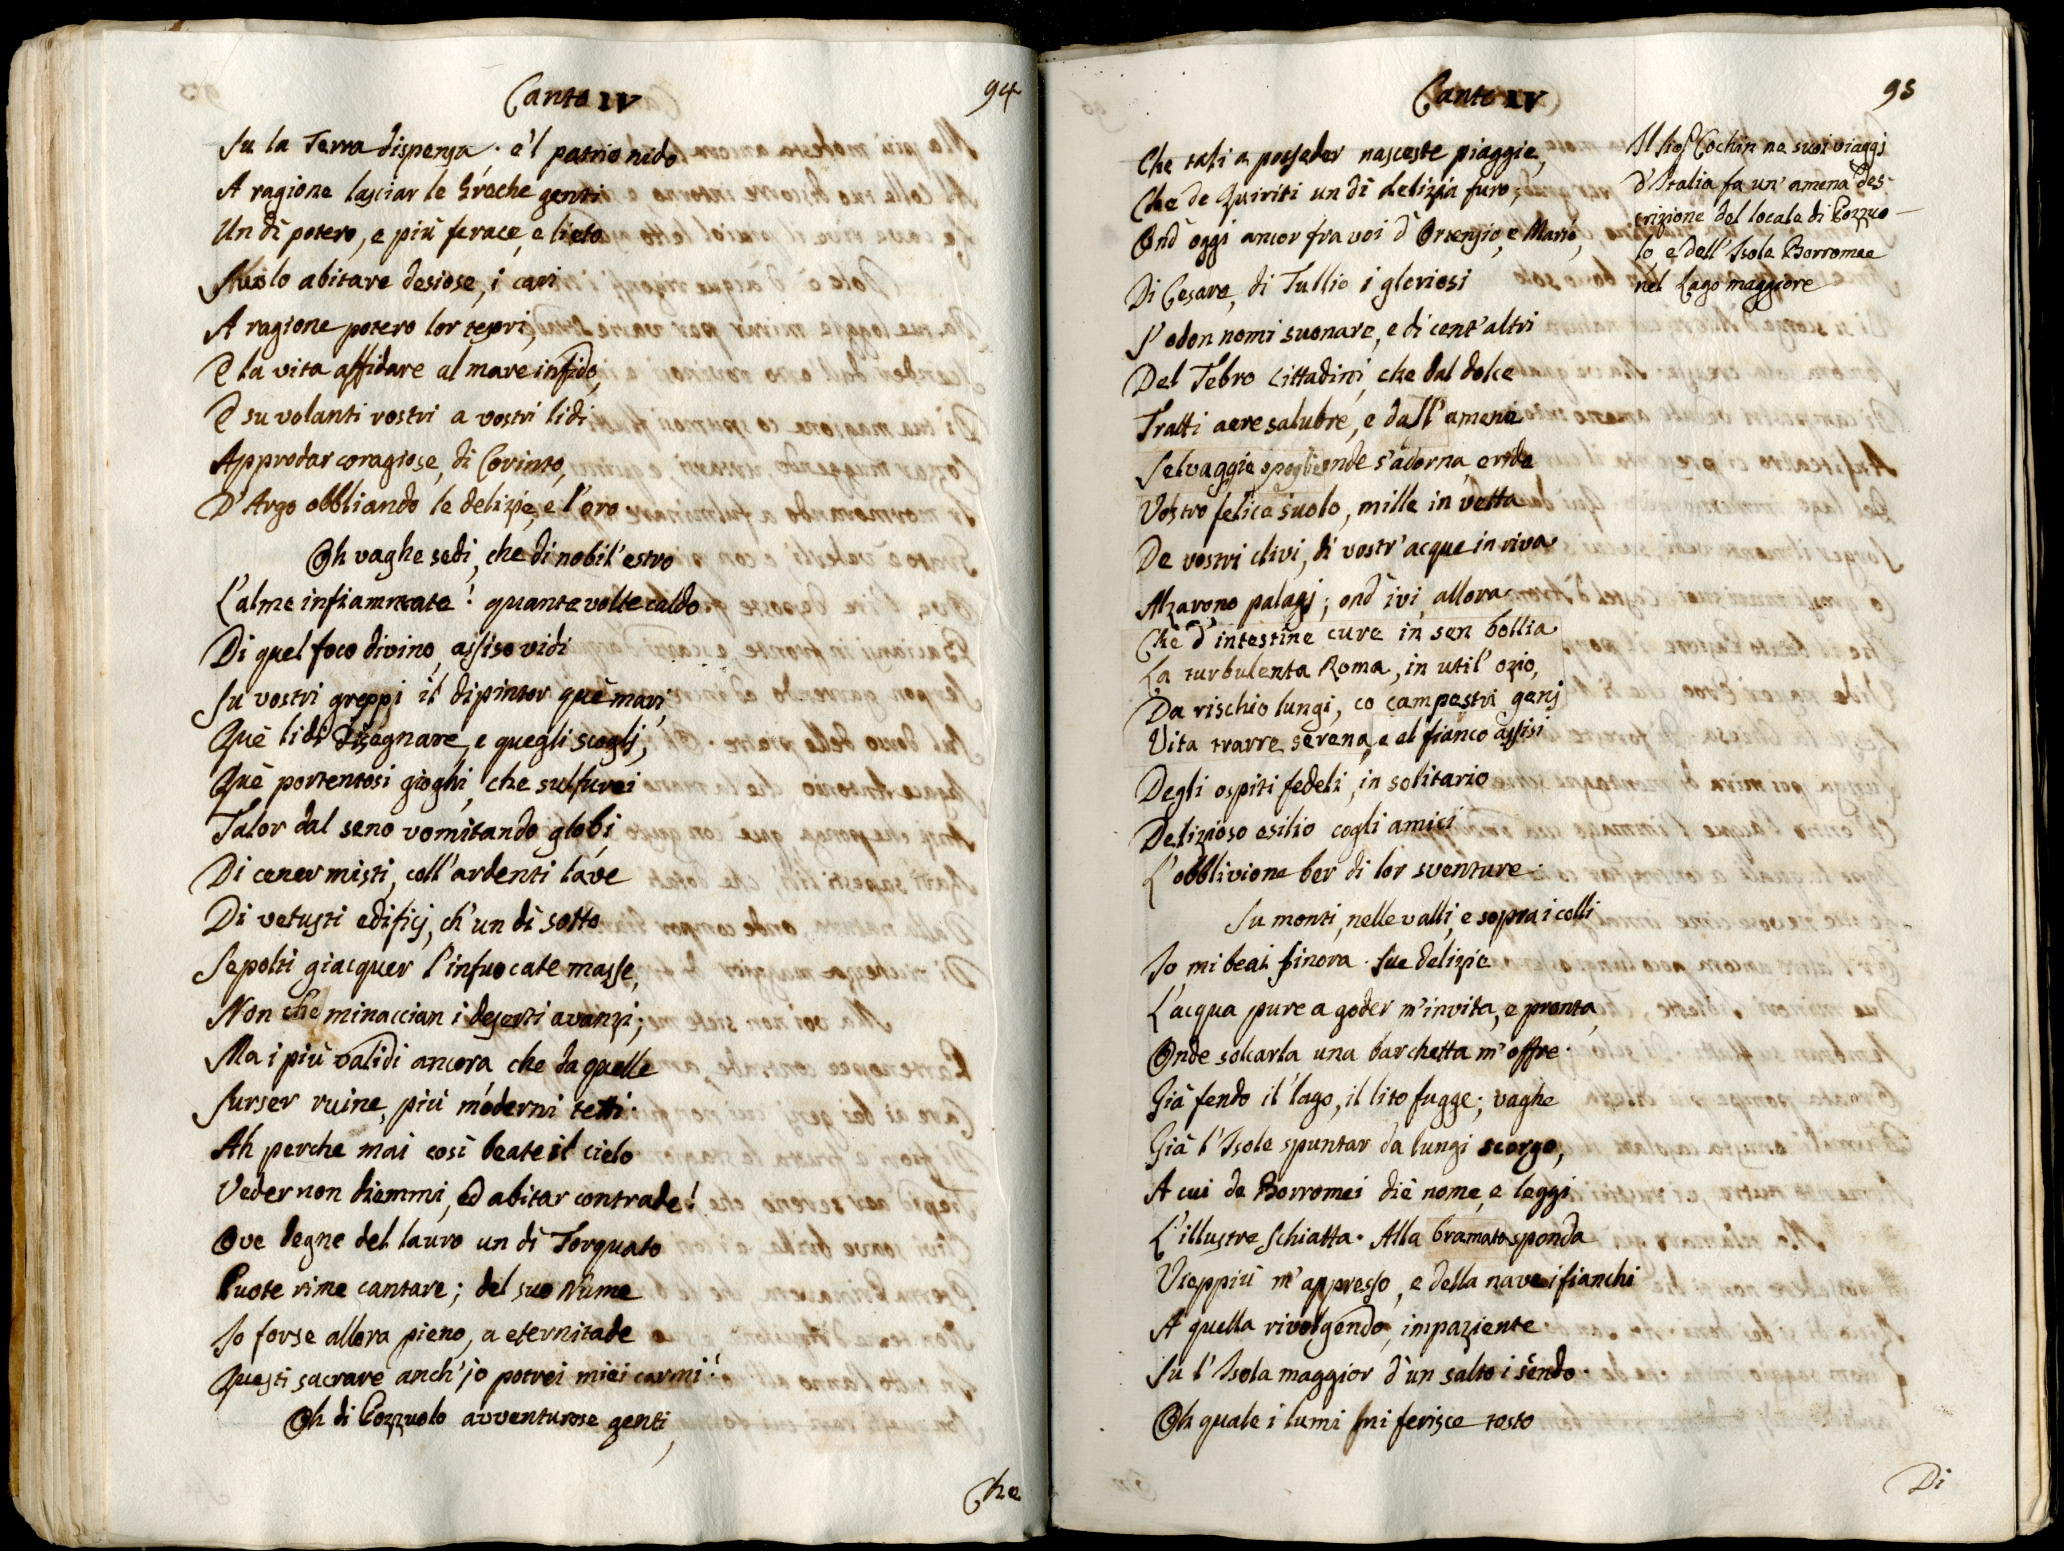 Canto IV
94
Su la Terra dispensa. e'l patrio nido
A ragione lasciar le Greche genti
Un dì potero, e più ferace, e lieto
Suolo abitare desiose, i cari
A ragione potero lor tesori,
E la vita affidare al mare infido,
E su volanti rostri a vostri lidi
Approdar coragiose, di Corinto,
D'Argo obbliando le delizie, e l'oro
Oh vaghe sedi, che di nobil'estro
L'alme infiammate! quante volte caldo
Di quel foco divino, assiso vidi
Su vostri greppi il dipintor què mari,
Què lidi disegnare, e quegli scoglj,
Què portentosi gioghi, che sulfurei
Talor dal seno vomitando globi,
Di cener misti, coll'ardenti lave
Di vetusti edificj, ch'un dì sotto
Sepolti giacquer l'infuocate masse,
Non che minaccian i deserti avanzi;
Ma i più validi ancora che da quelle
Surser ruine, più moderni tetti.
Ah perche mai così beate il cielo
Veder non diemmi, ed abitar contrade!
Ove degne del lauro un dì Torquato
Puote rime cantare; del suo Nume
Io forse allora pieno, a eternitade
Questi sacrare anch'io potrei miei carmi!
Oh di Pozzuolo avventurose genti,
Che
Canto IV
95
Che tali a posseder nasceste piaggie,
Che de Quiriti un dì delizia furo;
Ond'oggi ancor fra voi d'Ortensio, e Mario,
Di Cesare, di Tullio i gloriosi
S'odon nomi suonare, e di cent'altri
Del Tebro Cittadini, che dal dolce
Tratti aere salubre, e dall'amene
Selvaggie spoglie onde s'adorna, e ride
Vostro felice suolo, mille in vetta
De vostri clivi, di vostr'acque in riva
Alzarono palagj; ond'ivi, allora
Che d'intestine cure in sen bollia
La turbulenta Roma, in util'ozio,
Da rischio lungi, co campestri genj
Vita trarre serena, e al fianco assisi
Degli ospiti fedeli, in solitario
Delizioso esilio cogli amici
L'obblivione ber di lor sventure.
Su monti, nelle valli, e sopra i colli
Io mi beai finora. Sue delizie
L'acqua pure a goder m'invita, e pronta,
Onde solcarla una barchetta m'offre.
Già fendo il lago, il lito fugge; vaghe
Già l'Isole spuntar da lungi scorgo,
A cui de Borromei diè nome, e leggi
L'illustre Schiatta. Alla bramata sponda
Vieppiù m'appresso, e della nave i fianchi
A quella rivolgendo, impaziente
Sù l'Isola maggior d'un salto i' sendo.
Oh quale i lumi mi ferisce tosto
Di
Il Sig. Cochin ne suoi viaggj
d'Italia fa un'amena des-
crizione del locale di Pozzuo-
lo, e dell'Isole Borromee
nel Lago maggiore